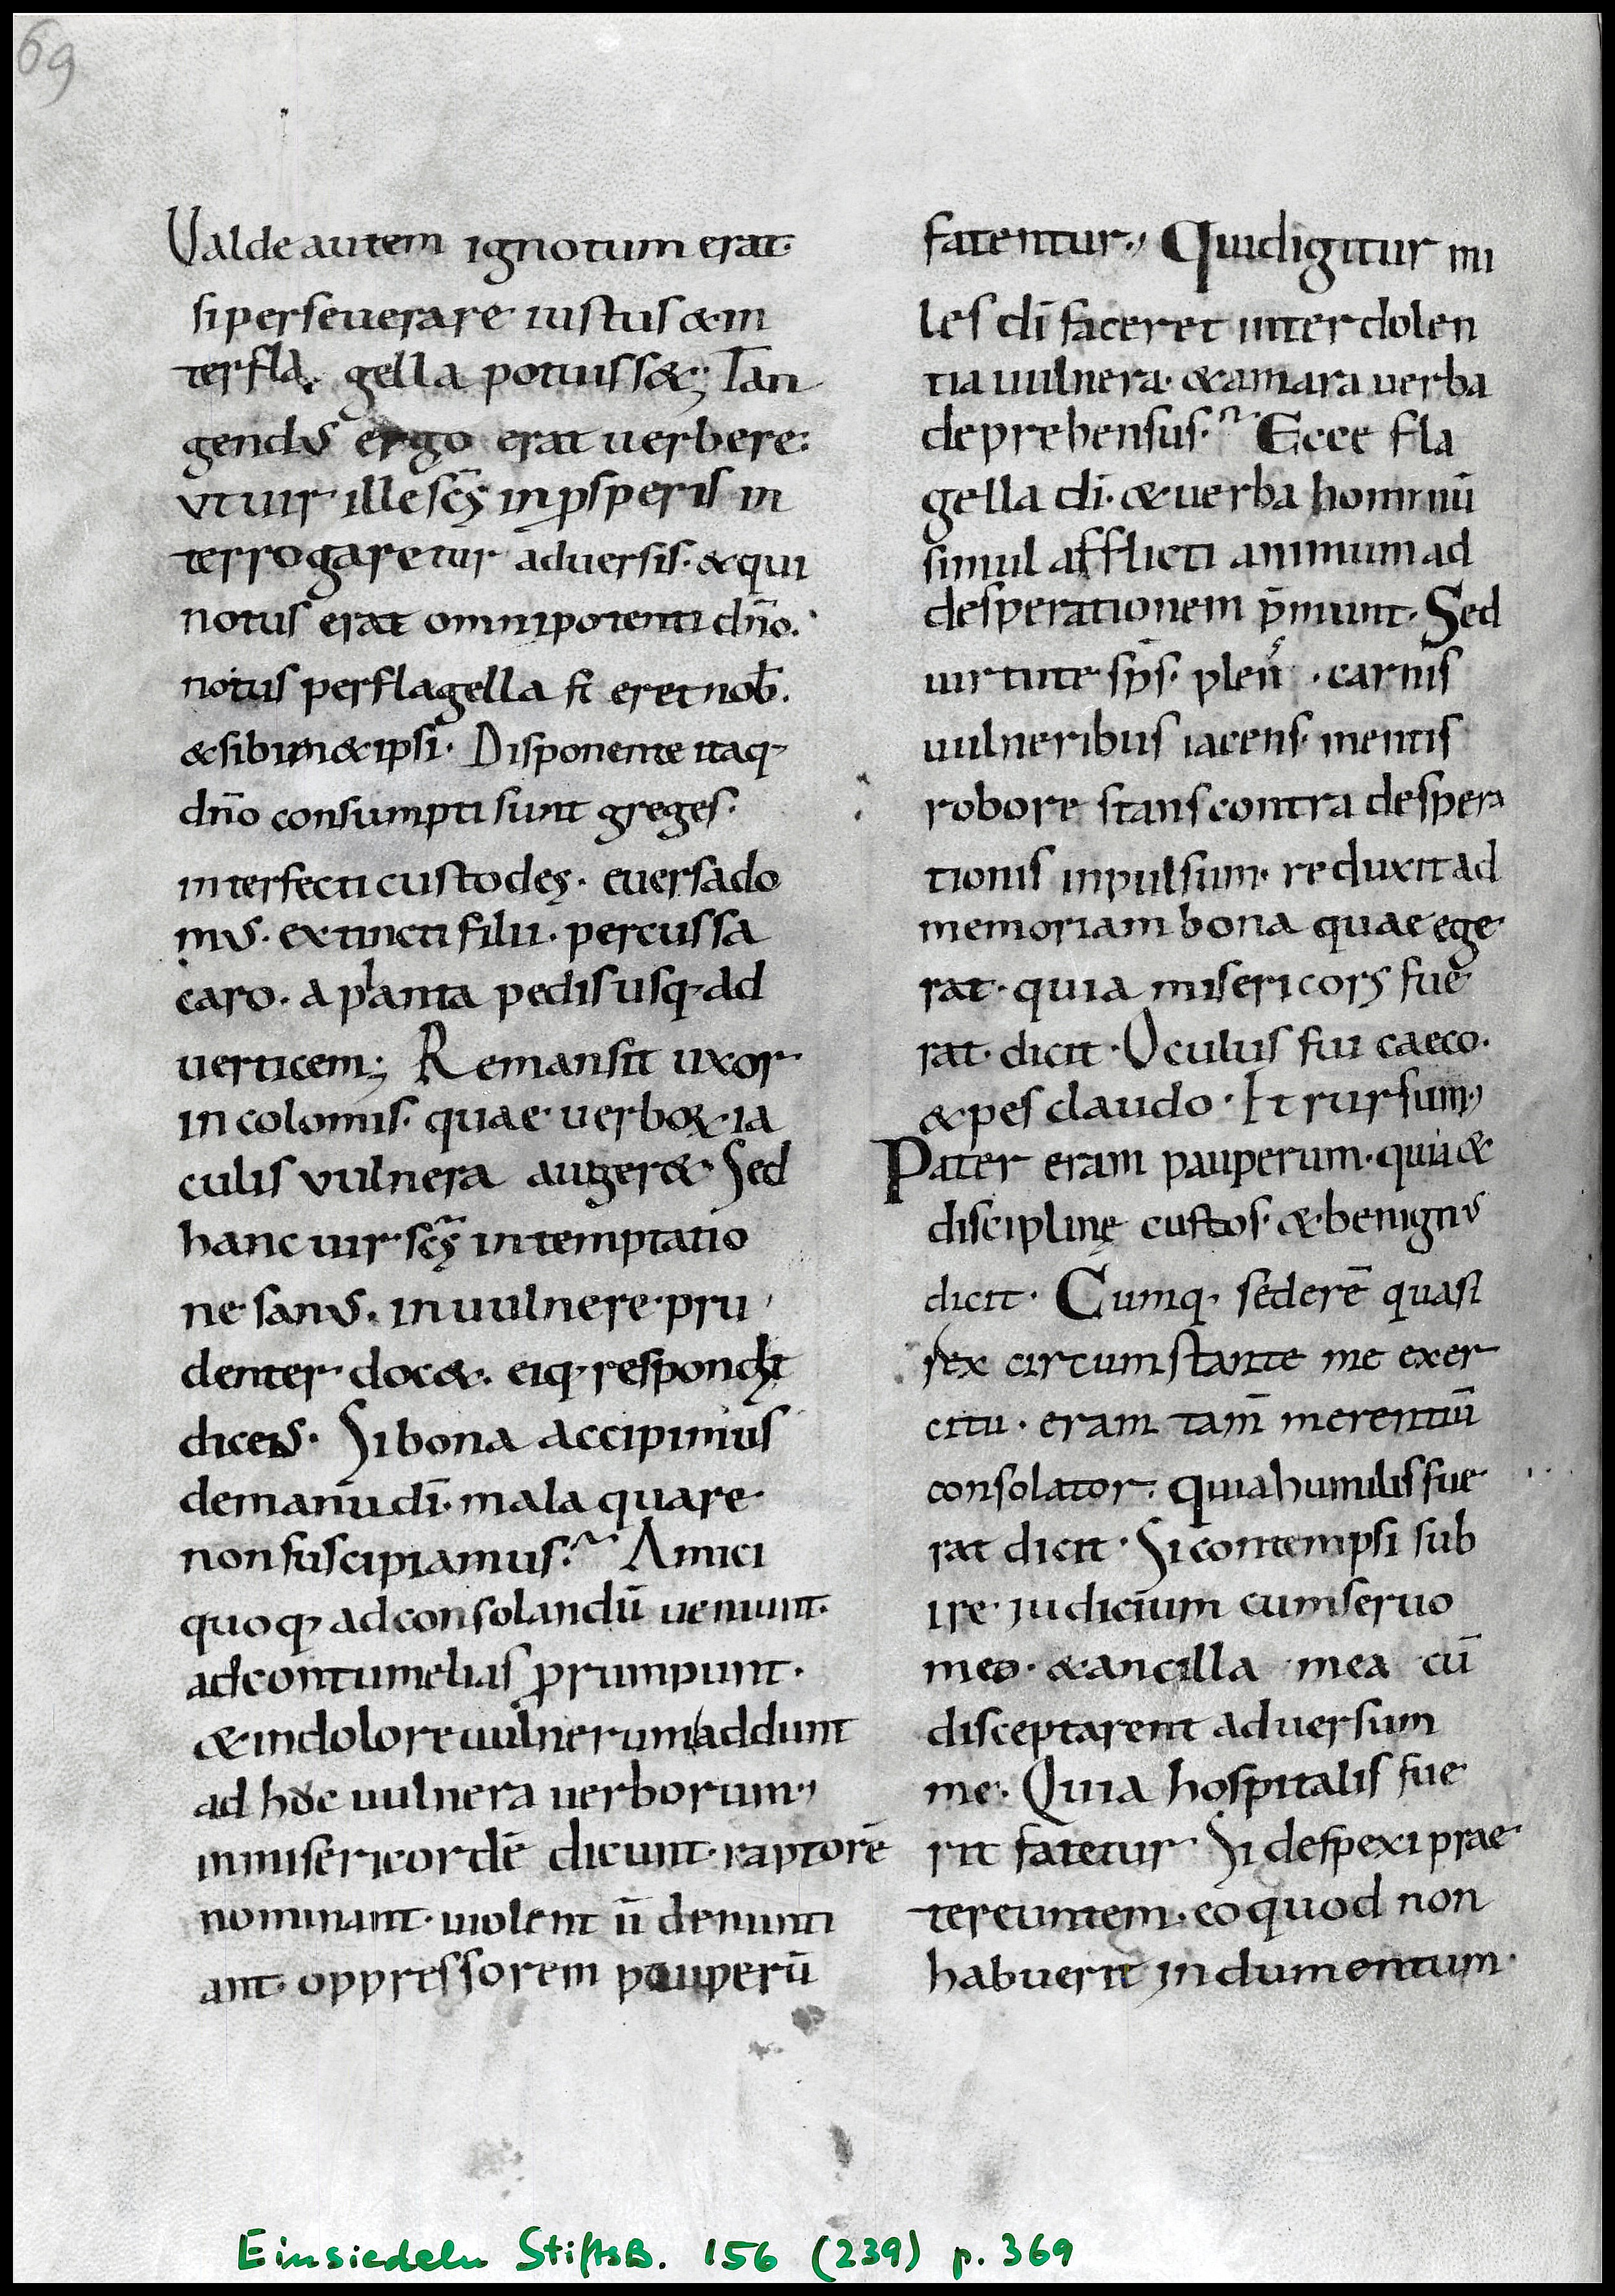 69
Ualde autem ignotum erat.
si perseuerare iustus & in
ter fla gella potuiss&; Tan
gendus ergo erat uerbere:
ut uir ille scs in psperis in
terrogaretur aduersis. & qui
notus erat omnipotenti dño.
notus per flagella fi eret nob.
& sibim& ipsi. Disponente itaq
dño consumpti sunt greges.
interfecti custodes. euersa do
mus. extincti filii. percussa
caro. a planta pedis usq ad
uerticem; Remansit uxor
incolomis. quae uerboꝝ ia
culis vulnera auger&. Sed
hanc uir scs in temptatio
ne sanus. in uulnere pru
denter doc&. eiq respondit
dicens. Si bona accipimus
de manu dī. mala quare
non suscipiamus? Amici
quoq ad consolandū ueniunt.
ad contumelias prumpunt.
& in dolore uulnerum addunt
ad hoc uulnera uerborum,
inmisericordē dicunt. raptorē
nominant. uiolent ū denunti
ant. oppressorem pauperū
fatentur. Quid igitur mi
les dī faceret inter dolen
tia uulnera. & amara uerba
deprehensus? Ecce fla
gella dī. & uerba hominū
simul afflicti animum ad
desperationem p̄munt. Sed
uirtute sp̄s. plen . carnis
uulneribus iacens. mentis
robore stans contra despera
tionis inpulsum. reduxit ad
memoriam bona quae ege
rat. quia misericors fue
rat. dicit. Oculus fui caeco.
& pes claudo. Et rursum,
Pater eram pauperum. quia &
disciplinę custos. & benignus
dicit. Cumq sederē quasi
rex circumstante me exer
citu. eram tam̄ merentiū
consolator. quia humilis fue
rat dicit. Si contempsi sub
ire iudicium cum seruo
meo. & ancilla mea cū
disceptarent aduersum
me. Quia hospitalis fue
rit fatetur Si despexi prae
tereuntem. eo quod non
habuerit indumentum.
Einsiedeln StiftsB. 156 (239) p. 369